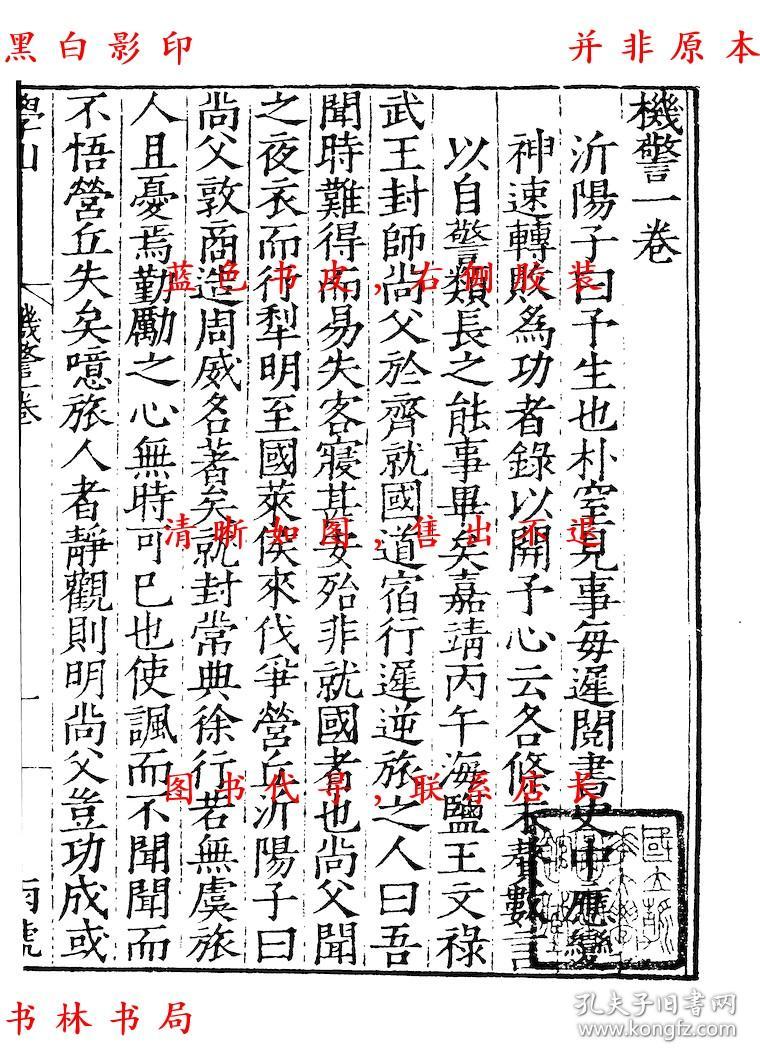 黑白影印
并非原本
機警一卷
沂陽子曰予生也朴窒見事每遲閱書史中應變
神速轉敗為功者錄以開予心云各條不贅數言
以自警類長之能事畢矣嘉靖丙午海鹽王文祿
武王封師尚父於齊就國道宿行遲逆旅之人曰吾
聞時難得而易失客寢甚安殆非就國者也尚父聞
之夜衣而行犁明至國萊侯來伐爭營丘沂陽子曰
尚父敦商造周威名著矣就封常典徐行若無虞旅
人且憂焉勤勵之心無時可已也使諷而不聞聞而
不悟營丘失矣噫旅人者靜觀則明尚父豈功成或
學山
機警一卷
一
蓝色书皮,右侧胶装
清晰如图,售出不退
图书代寻,联系店长
书林书局
孔夫子旧书网
www.kongfz.com